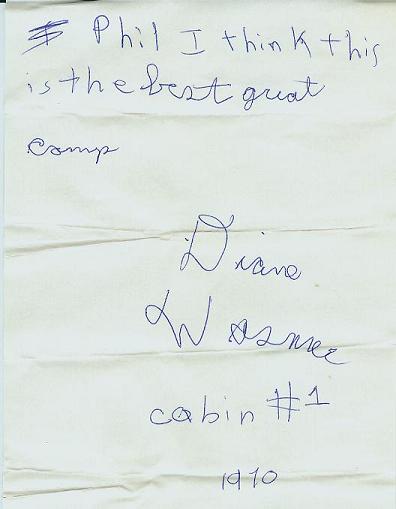 Phil I think this
is the best great
camp
Diane
cabin #1
1970